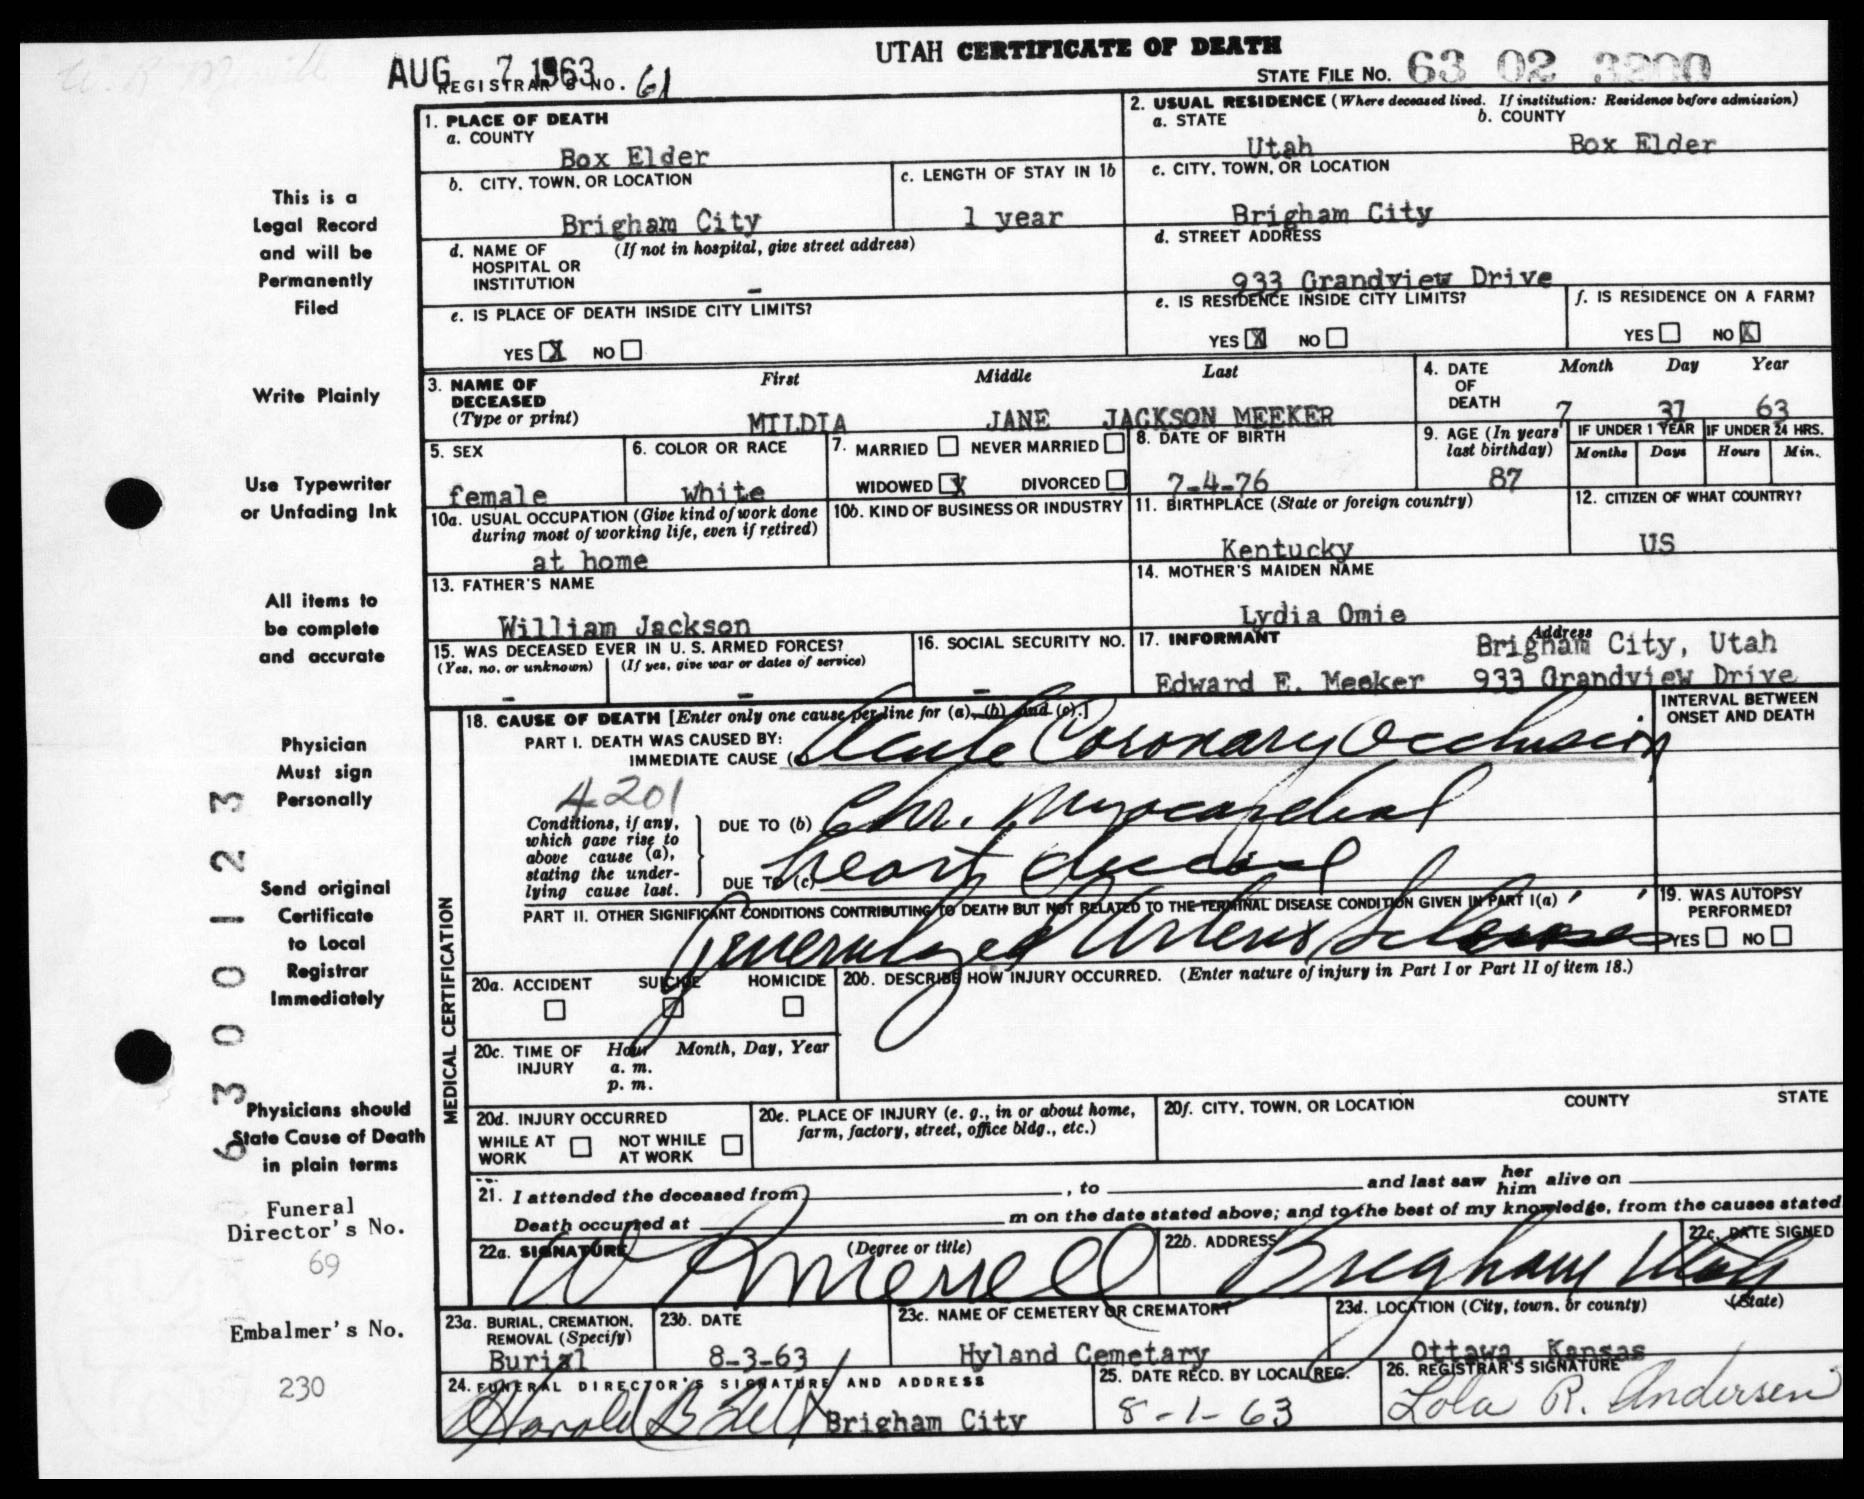 W. R. Merrill
UTAH CERTIFICATE OF DEATH
AUG 7 1963
REGISTRAR'S NO. 61
STATE FILE NO. 63 02 3200
1. PLACE OF DEATH
a. COUNTY
Box Elder
2. USUAL RESIDENCE (Where deceased lived. If institution: Residence before admission)
a. STATE b. COUNTY
Utah Box Elder
b. CITY, TOWN, OR LOCATION
Brigham City
c. LENGTH OF STAY IN 1b
1 year
c. CITY, TOWN, OR LOCATION
Brigham City
d. NAME OF HOSPITAL OR INSTITUTION (If not in hospital, give street address)
-
d. STREET ADDRESS
933 Grandview Drive
e. IS PLACE OF DEATH INSIDE CITY LIMITS?
YES X NO
e. IS RESIDENCE INSIDE CITY LIMITS?
YES X NO
f. IS RESIDENCE ON A FARM?
YES NO X
3. NAME OF DECEASED (Type or print)
First Middle Last
MILDIA JANE JACKSON MEEKER
4. DATE OF DEATH
Month Day Year
7 31 63
5. SEX
female
6. COLOR OR RACE
white
7. MARRIED NEVER MARRIED
WIDOWED X DIVORCED
8. DATE OF BIRTH
7-4-76
9. AGE (In years last birthday)
87
IF UNDER 1 YEAR
Months Days
IF UNDER 24 HRS.
Hours Min.
10a. USUAL OCCUPATION (Give kind of work done during most of working life, even if retired)
at home
10b. KIND OF BUSINESS OR INDUSTRY
11. BIRTHPLACE (State or foreign country)
Kentucky
12. CITIZEN OF WHAT COUNTRY?
US
13. FATHER'S NAME
William Jackson
14. MOTHER'S MAIDEN NAME
Lydia Omie
15. WAS DECEASED EVER IN U. S. ARMED FORCES?
(Yes, no, or unknown) (If yes, give war or dates of service)
- -
16. SOCIAL SECURITY NO.
-
17. INFORMANT Address
Edward E. Meeker
Brigham City, Utah
933 Grandview Drive
MEDICAL CERTIFICATION
18. CAUSE OF DEATH [Enter only one cause per line for (a), (b) and (c).]
INTERVAL BETWEEN ONSET AND DEATH
PART I. DEATH WAS CAUSED BY:
IMMEDIATE CAUSE (a) Acute Coronary Occlusion
4201
Conditions, if any, which gave rise to above cause (a), stating the underlying cause last.
DUE TO (b) Chr. Myocardial
DUE TO (c) heart disease
PART II. OTHER SIGNIFICANT CONDITIONS CONTRIBUTING TO DEATH BUT NOT RELATED TO THE TERMINAL DISEASE CONDITION GIVEN IN PART I(a)
Generalized Arterio Sclerosis
19. WAS AUTOPSY PERFORMED?
YES NO
20a. ACCIDENT SUICIDE HOMICIDE
20b. DESCRIBE HOW INJURY OCCURRED. (Enter nature of injury in Part I or Part II of item 18.)
20c. TIME OF INJURY
Hour Month, Day, Year
a. m.
p. m.
20d. INJURY OCCURRED
WHILE AT WORK NOT WHILE AT WORK
20e. PLACE OF INJURY (e. g., in or about home, farm, factory, street, office bldg., etc.)
20f. CITY, TOWN, OR LOCATION COUNTY STATE
21. I attended the deceased from , to and last saw her him alive on
Death occurred at m on the date stated above; and to the best of my knowledge, from the causes stated
22a. SIGNATURE (Degree or title)
W R Merrell
22b. ADDRESS
Brigham Utah
22c. DATE SIGNED
23a. BURIAL, CREMATION, REMOVAL (Specify)
Burial
23b. DATE
8-3-63
23c. NAME OF CEMETERY OR CREMATORY
Hyland Cemetary
23d. LOCATION (City, town, or county) (State)
Ottawa Kansas
24. FUNERAL DIRECTOR'S SIGNATURE AND ADDRESS
Harold B Felt Brigham City
25. DATE RECD. BY LOCAL REG.
8-1-63
26. REGISTRAR'S SIGNATURE
Lola R. Andersen
This is a
Legal Record
and will be
Permanently
Filed
Write Plainly
Use Typewriter
or Unfading Ink
All items to
be complete
and accurate
Physician
Must sign
Personally
Send original
Certificate
to Local
Registrar
Immediately
Physicians should
State Cause of Death
in plain terms
Funeral
Director's No.
69
Embalmer's No.
230
6300123